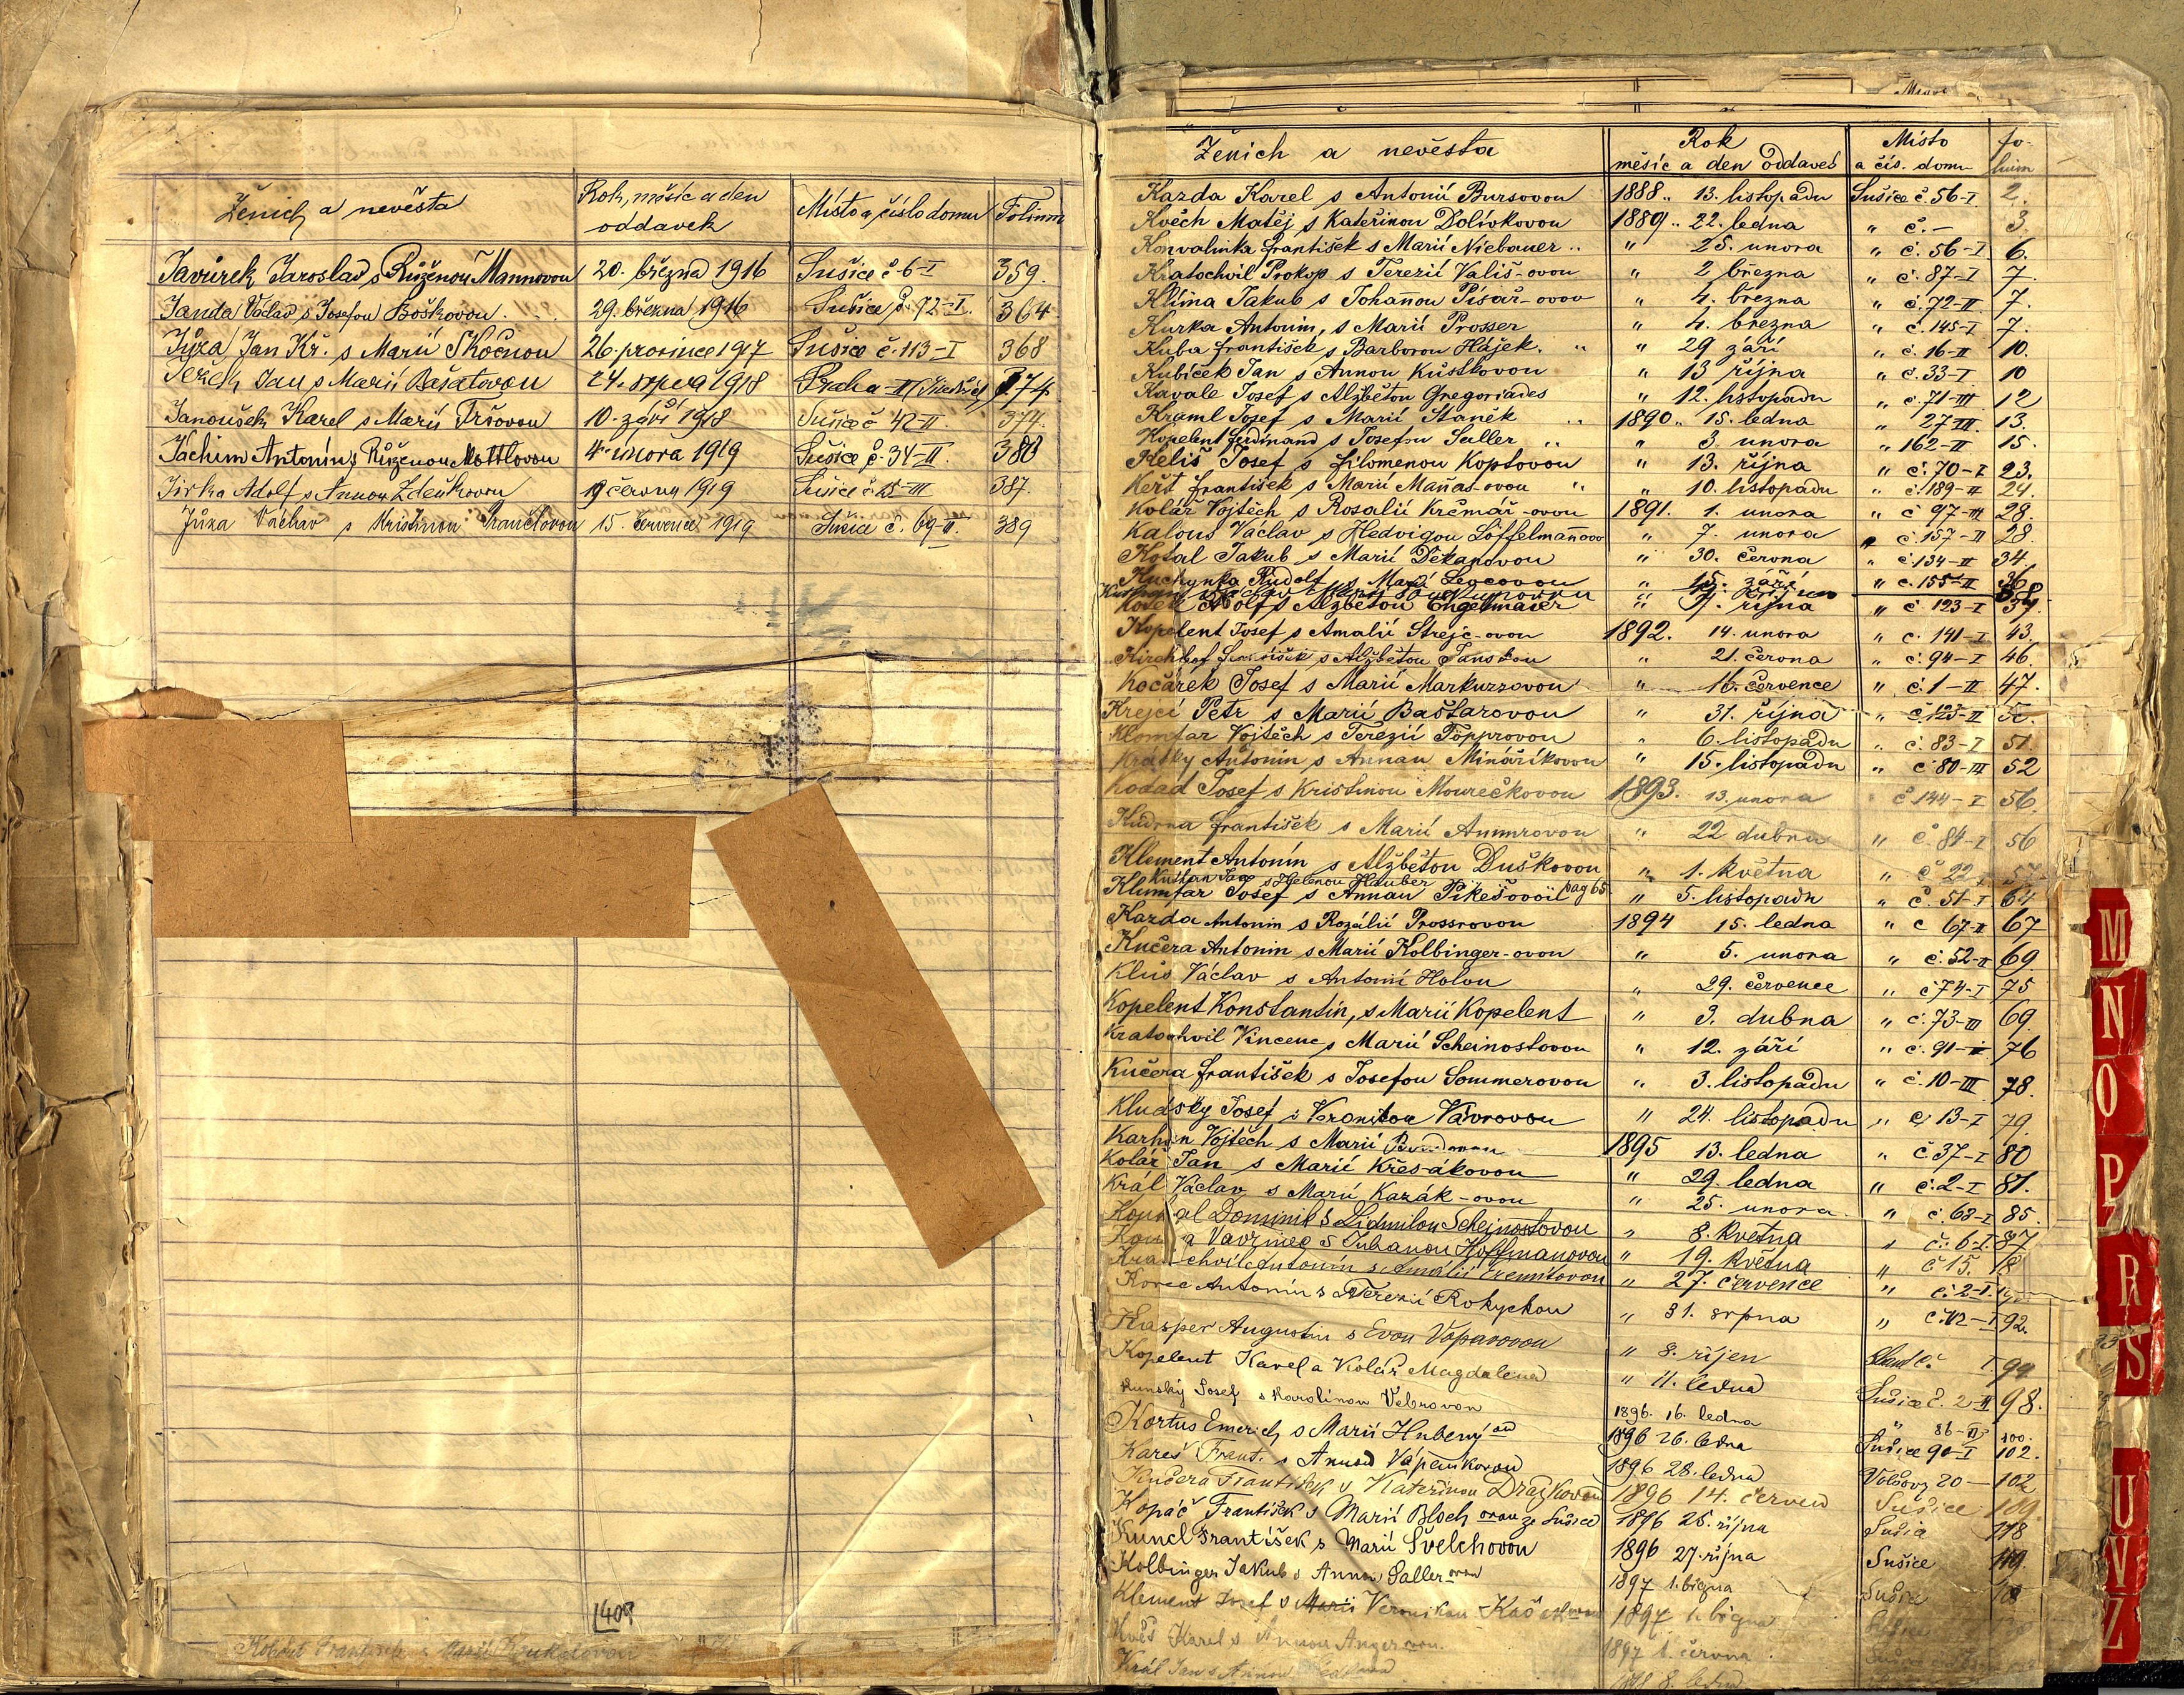 Ženich a nevěsta Rok, měsíc a den oddavek Místo a číslo domu Folium
Javůrek Jaroslav s Růženou Mannovou 20. března 1916 Sušice č 6-I 359.
Janda Václav s Josefou Boškovou 29. března 1916 Sušice č. 72-I. 364
Jůza Jan Kř. s Marií Skočnou 26. prosince 1917 Sušice č. 113-I 368
Ježek Jan s Marií Bašatovou 24. srpna 1918 Praha-II 374.
Janoušek Karel s Marií Tršovou 10. září 1918 Sušice č 42-II. 374.
Jáchim Antonín s Růženou Mottlovou 4. února 1919 Sušice č. 34-II. 380
Jirka Adolf s Annou Zdeňkovou 19 června 1919 Sušice č. 15-III 387.
Jůza Václav s Kristinou 15. července 1919 Sušice č. 69-II. 389
409
Ženich a nevěsta Rok měsíc a den oddavek Místo a čís. domu fo-lium
Kazda Karel s Antonií Bursovou 1888 „ 13. listopadu Sušice č. 56-I 2.
Kvěch Matěj s Kateřinou Dolivkovou 1889 „ 22. ledna „ č. – 3
Konvalinka František s Marií Niebauer „ „ 25. unora „ č. 56-I 6.
Kratochvíl Prokop s Terezií Vališ-ovou „ 2 března „ č. 87-I 7.
Klíma Jakub s Johannou Písař-ovou „ 4. března „ č. 72-II 7.
Kurka Antonín, s Marií Prosser „ 4. března „ č. 145-I 7.
Kuba František s Barborou Hájek. „ „ 29 září „ č. 16-II 10.
Kubíček Jan s Annou Kůstkovou „ 13 října „ č. 33-I 10
Kavale Josef s Alžbětou Gregoriades „ 12. listopadu „ č. 71-III 12
Kraml Josef s Marií Staněk „ 1890 „ 15. ledna „ 27-III. 13.
Kopelent Ferdinand s Josefou Saller „ „ 3. unora „ 162-II 15.
Keliš Josef s Filomenou Koptovou „ 13. října „ č. 70-I 23.
Keřt František s Marií Maňas-ovou „ „ 10. listopadu „ č. 189-II 24.
Kolář Vojtěch s Rosalií Krčmář-ovou 1891. 1. unora „ č 97-III 28.
Kalous Václav s Hedvigou Löffelmannovou „ 7. unora „ č. 157-II 28.
Kotal Jakub s Marií Děkanovou „ 30. června „ č. 134-II 34.
Kuchynka Rudolf s Marií Legeovou „ 15. září „ č. 155-II 36
Adolf s Alžbětou Engelmaier „ října „ č 123-I 37.
Kopelent Josef s Amalií Strejc-ovou 1892. 14. unora „ č. 141-I 43.
Kirchhof František s Alžbětou Janskou „ 21. června „ č. 94-I 46.
Kočárek Josef s Marií Markuzzovou „ 16. července „ č. 1-II 47.
Krejčí Petr s Marií Baštarovou „ 31. října „ č. 125-II
Klomfar Vojtěch s Terezií Töpprovou „ 6. listopadu „ č. 83-I 51.
Krátký Antonín s Annau Minaříkovou „ 15. listopadu „ č. 80-III 52
Kodad Josef s Kristinou Mourečkovou 1893. 13. unora č. 144-I 56.
Kudrna František s Marií „ 22 dubna „ č. 84-I 56
Klement Antonín s Alžbětou Duškovou „ 1. května „ č 22
s Helenou Hauber pag 65
Klimfar Josef s Annau Pikešovou „ 5. listopadu „ č. 51-I 64
Kazda Antonín s Rozálií Prossrovou 1894 15. ledna „ č 67-II 67
Kučera Antonín s Marií Kolbinger-ovou „ 5. unora „ č. 52-II 69.
Klůs Václav s Antonií Holou „ 29. července „ č 74-I 75
Kopelent Konstantin, s Marií Kopelent „ 3. dubna „ č. 73-III 69
Kratochvíl Vincenc s Marií Scheinostovou „ 12. září „ č. 91 76
Kučera František s Josefou Sommerovou „ 3. listopadu „ č. 10-III 78.
Kludský Josef s Veronikou Vávrovou „ 24. listopadu „ č. 13-I 79.
Karhan Vojtěch s Marií 1895 13. ledna „ č. 37-I 80
Kolář Jan s Marií Křesákovou „ 29. ledna „ č. 2-I 81.
Král Václav s Marií Kazák-ovou „ 25. unora „ č. 68-I 85.
Dominik s Lidmilou Schejnostovou „ 8. května „ č. 6-I. 87
Vavřinec s Juhanou Hoffmanovou „ 19. května „ č 15.
Kratochvíl Antonín s Amálií „ 27. července „ č. 2-I.
Korec Antonín s Terezií Rokyckou „ 31. srpna „ 92.
Kasper Augustin s Evou „ 8. říjen I 94
Kopelent Karel a Kolář Magdalena „ 11. ledna Sušice č. 2-II 98.
Kunský Josef s Karolinou Vebrovou 1896. 16. ledna „ 86-II 100.
Kortus Emerich s Marií Hubený ou 1896 26. ledna Sušice 90-I 102.
Kareš Frant. s Annou Vápeníkovou 1896 28. ledna Volšovy 20 – 102
Kučera František s Kateřinou 1896 14. červen Sušice 109.
Kopáč František s Marií Bloch ovou ze Sušice 1896 25. října Sušice 118
Kuncl František s Marií Švelchovou 1896 27. října Sušice 119.
Kolbinger Jakub s Annou Saller ovou 1897 1. Sušice
Klement Josef s Marií Veronikou 1897
Karel s Annou Anger ovou. 1897 1. června
Král Jan s Annou 1898 8. ledna
M
N
O
P
R
S
U
V
Z